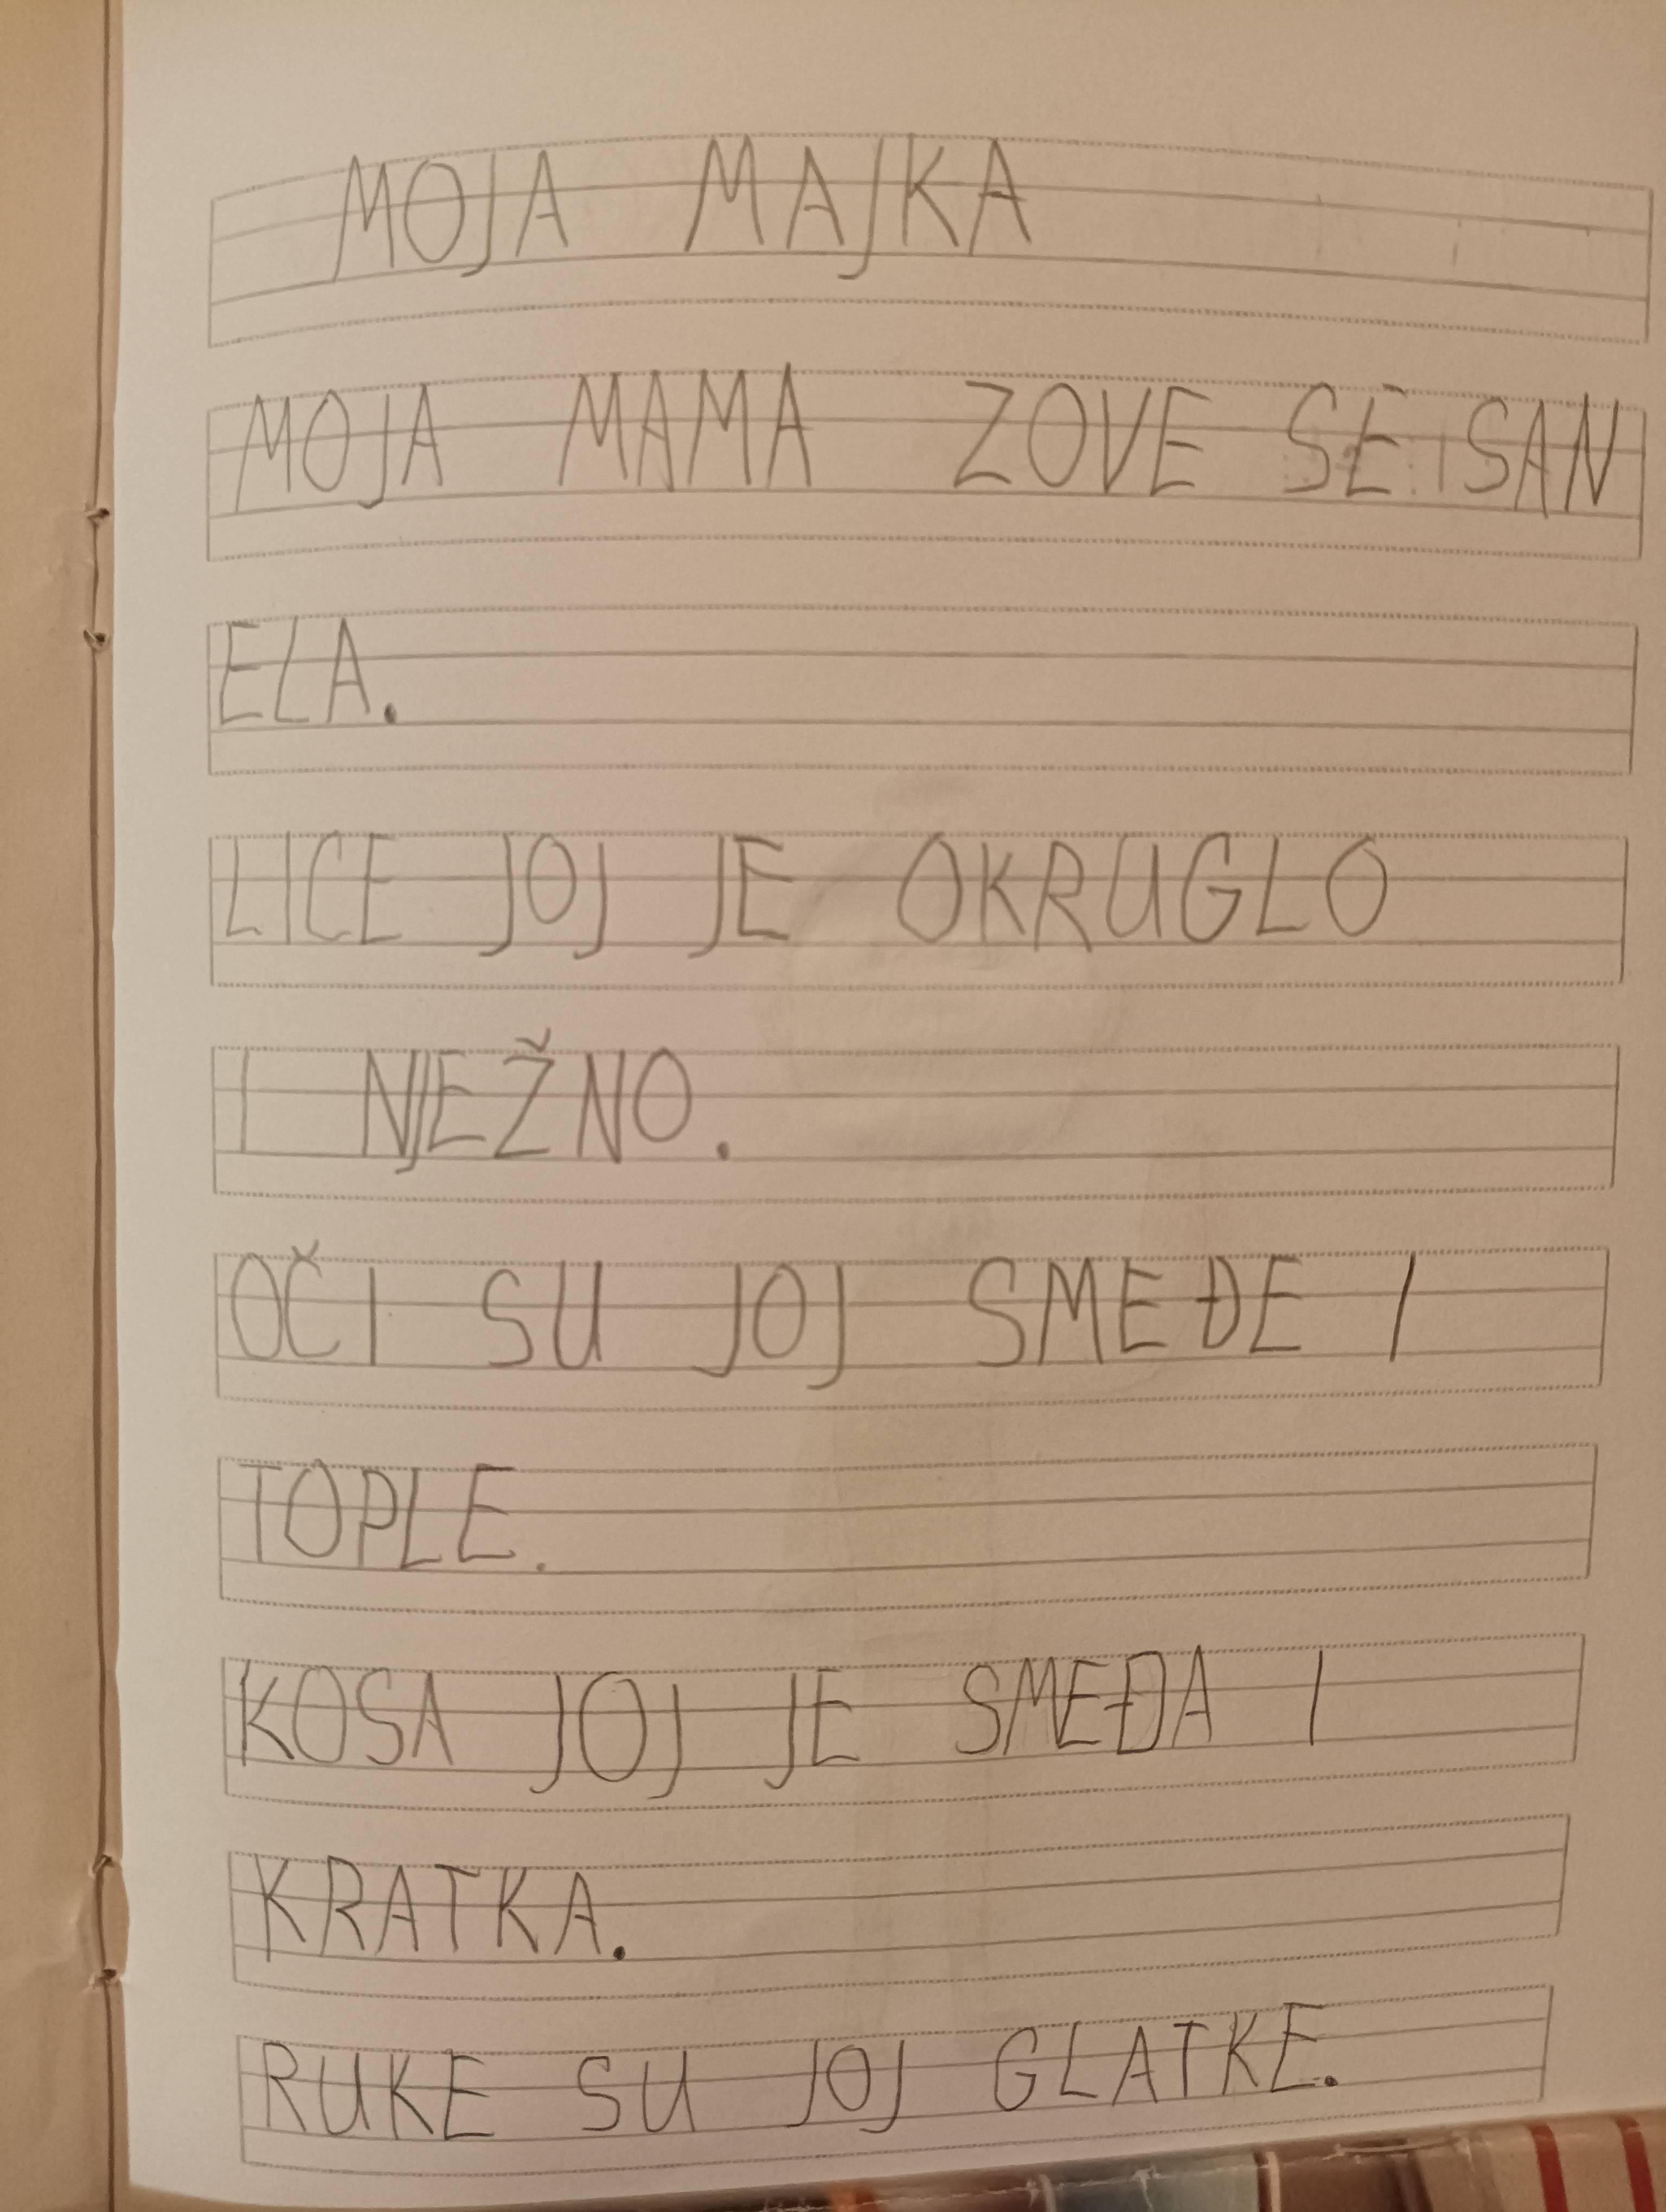 MOJA MAJKA
MOJA MAMA ZOVE SE SAN
ELA.
LICE JOJ JE OKRUGLO
I NJEŽNO.
OČI SU JOJ SMEĐE I
TOPLE.
KOSA JOJ JE SMEĐA I
KRATKA.
RUKE SU JOJ GLATKE.